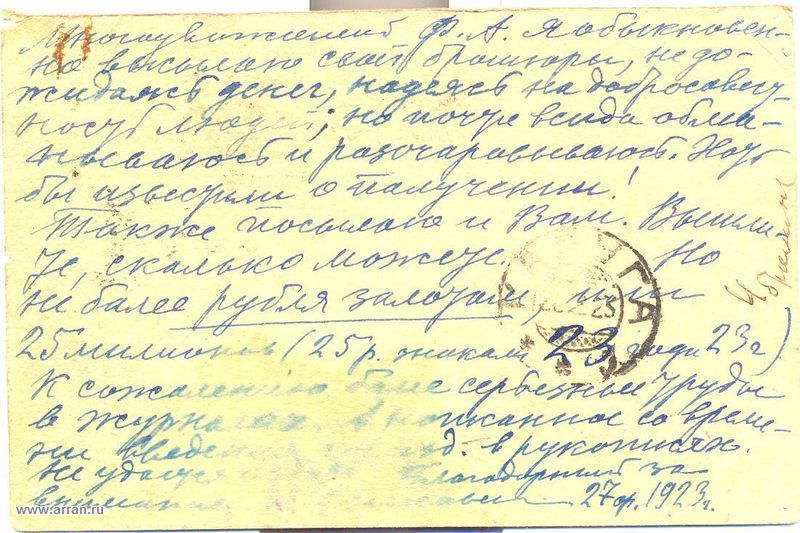 Многоуважаемый Ф. А. Я обыкновен-
но высылаю свои брошюры, не до-
жидаясь денег, надеясь на добросовест
ность людей; но почти всегда обма-
нываюсь и разочаровываюсь. Хоть
бы известили о получении!
Также посылаю и Вам. Вышли-
те, сколько можете, но
не более рубля золотом или
25 милионов (25 р. знаками 23 года 23 г)
К сожалению более серьезные труды
в журналах. А написанное со време-
ни введения в рукописях.
Не удается Благодарный за
внимание 27 фр. 1923 г.
КАЛУГА
23
www.arran.ru